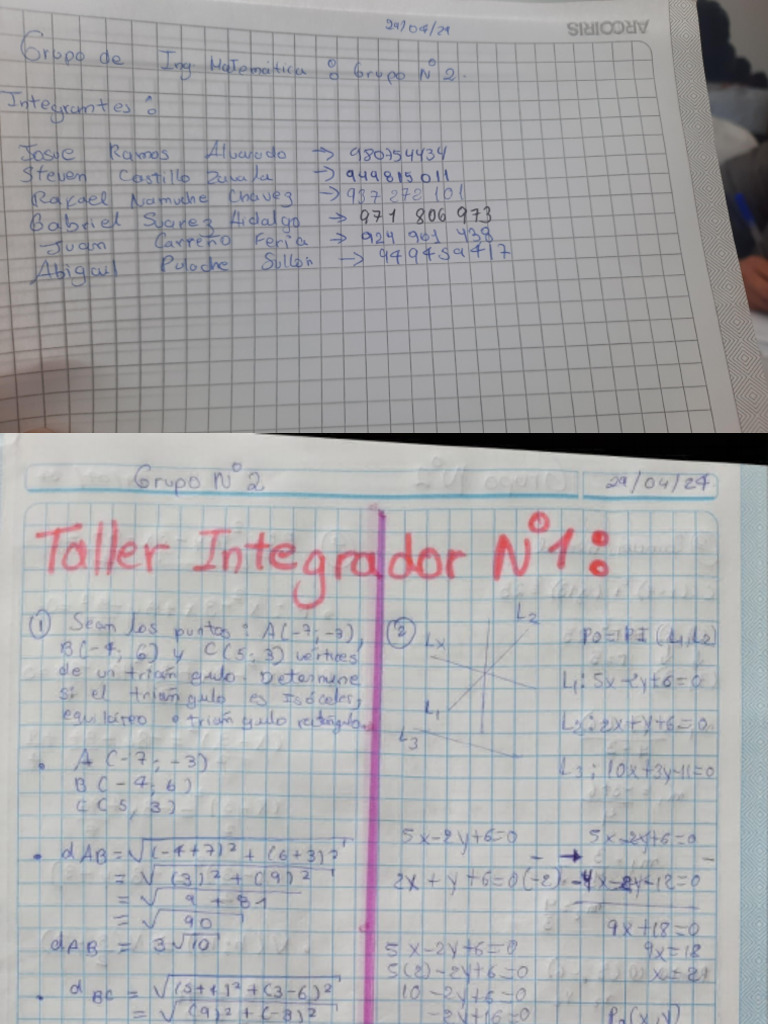 29/04/24
ARCOIRIS
Grupo de Ing. Matemática : Grupo N° 2.
Integrantes :
Josue Ramos Alvarado → 980754434
Steven Castillo Zavala → 949815011
Rafael Namuche Chavez → 937 272 101
Gabriel Suarez Hidalgo → 971 806 973
Juan Carreño Feria → 924 961 438
Abigail Puloche Sullon → 949459417
Grupo N° 2
29/04/24
Taller Integrador N°1:
① Sean los puntos : A(-7; -3),
B(-4; 6) y C(5; 3) vértices
de un triangulo. Determine
si el triangulo es Isóceles,
equilatero o triangulo rectangulo.
• A (-7; -3)
B(-4; 6)
C(5, 3)
• dAB = √(-4+7)² + (6+3)²
= √(3)² + (9)²
= √9 + 81
= √90
dAB = 3√10
• dBC = √(5+4)² + (3-6)²
= √(9)² + (-3)²
②
L2
Lx
L1
L3
Po = P I (L1, L2)
L1: 5x-2y+6=0
L2: 2x+y+6=0
L3: 10x+3y-11=0
5x-2y+6=0
2x + y +6=0 (-2)
→ 5x-2y+6=0
-4x-2y-12=0
9x+18=0
9x=18
5x-2y+6=0
5(2)-2y+6=0
10-2y+6=0
-2y+16=0
P2(x,y)